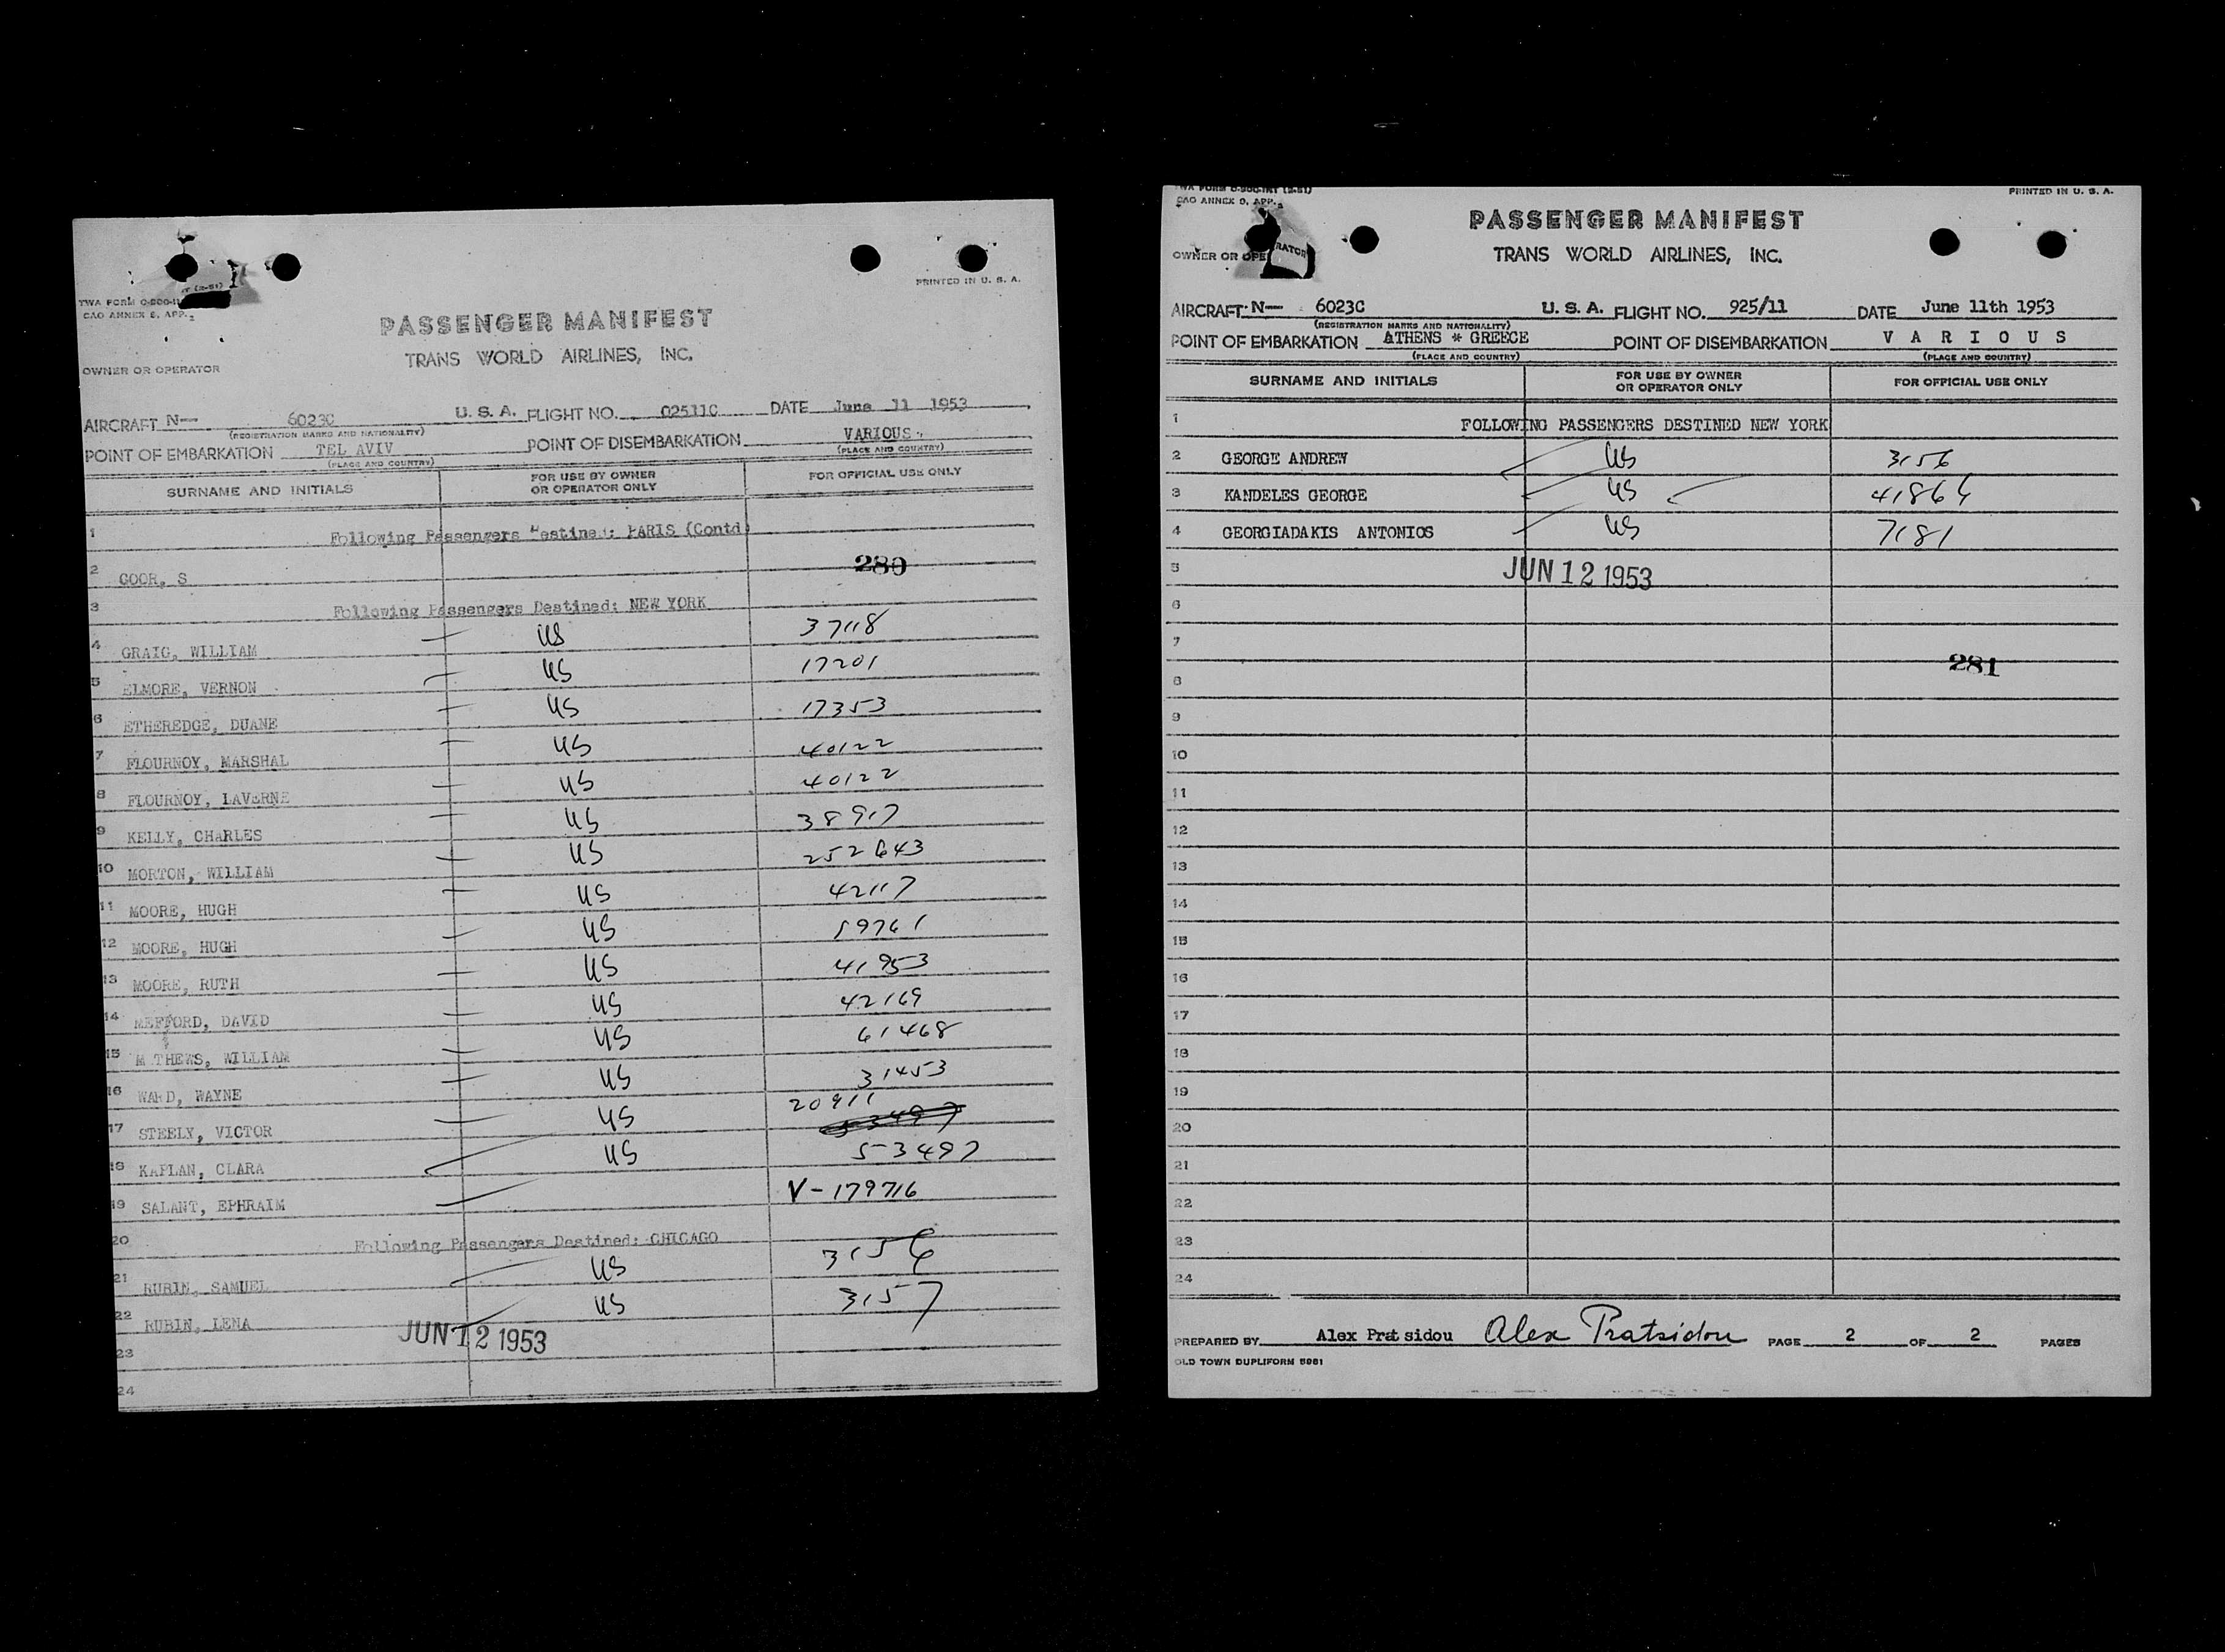 TWA FORM 0-800-1
CAO ANNEX 9, APP. 2
PRINTED IN U. S. A.
PASSENGER MANIFEST
TRANS WORLD AIRLINES, INC.
OWNER OR OPERATOR
AIRCRAFT N— 6023C U. S. A. FLIGHT NO. DATE June 11 1953
(REGISTRATION MARKS AND NATIONALITY)
POINT OF EMBARKATION TEL AVIV POINT OF DISEMBARKATION VARIOUS
(PLACE AND COUNTRY) (PLACE AND COUNTRY)
SURNAME AND INITIALS FOR USE BY OWNER OR OPERATOR ONLY FOR OFFICIAL USE ONLY
1 Following Passengers Destined: PARIS (Contd)
2 GOOR, S 280
3 Following Passengers Destined: NEW YORK
4 GRAIG, WILLIAM US 37118
5 ELMORE, VERNON US 17201
6 ETHEREDGE, DUANE US 17353
7 FLOURNOY, MARSHAL US 40122
8 FLOURNOY, LAVERNE US 40122
9 KELLY, CHARLES US 38917
10 MORTON, WILLIAM US 252643
11 MOORE, HUGH US 42117
12 MOORE, HUGH US 59761
13 MOORE, RUTH US 41953
14 MEFFORD, DAVID US 42169
15 M THEWS, WILLIAM US 61468
16 WARD, WAYNE US 31453
17 STEELY, VICTOR US 20911
18 KAPLAN, CLARA US 53497
19 SALANT, EPHRAIM V-179716
20 Following Passengers Destined: CHICAGO
21 RUBIN, SAMUEL US 3156
22 RUBIN, LENA US 3157
JUN 12 1953
23
24
TWA FORM 0-800-INT (2-51)
CAO ANNEX 9, APP. 2
PRINTED IN U. S. A.
PASSENGER MANIFEST
OWNER OR OPERATOR TRANS WORLD AIRLINES, INC.
AIRCRAFT N— 6023C U. S. A. FLIGHT NO. 925/11 DATE June 11th 1953
(REGISTRATION MARKS AND NATIONALITY)
POINT OF EMBARKATION ATHENS * GREECE POINT OF DISEMBARKATION V A R I O U S
(PLACE AND COUNTRY) (PLACE AND COUNTRY)
SURNAME AND INITIALS FOR USE BY OWNER OR OPERATOR ONLY FOR OFFICIAL USE ONLY
1 FOLLOWING PASSENGERS DESTINED NEW YORK
2 GEORGE ANDREW US 3156
3 KANDELES GEORGE US 41864
4 GEORGIADAKIS ANTONIOS US 7181
5 JUN 12 1953
6
7
281
8
9
10
11
12
13
14
15
16
17
18
19
20
21
22
23
24
PREPARED BY Alex Pratsidou Alex Pratsidou PAGE 2 OF 2 PAGES
OLD TOWN DUPLIFORM 5981